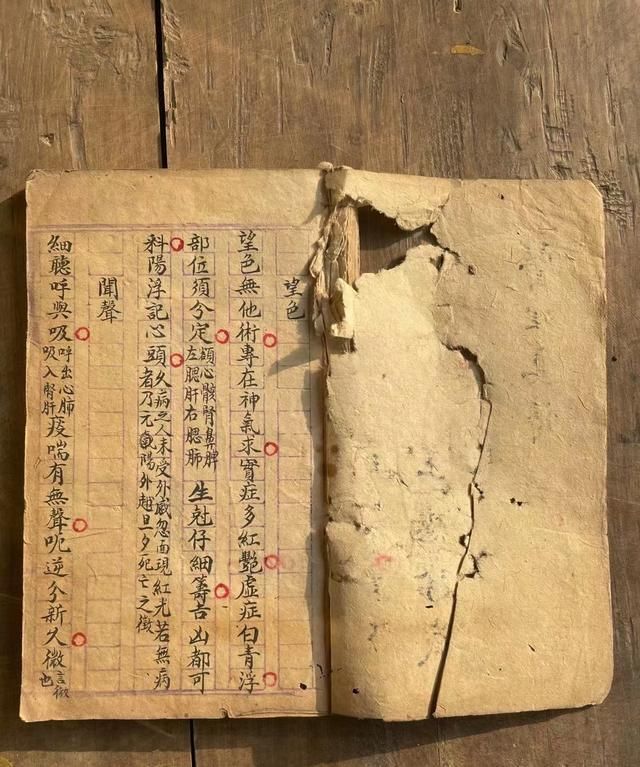 望色
望色無他術專在神氣求實症多紅艷虛症白青浮
部位須分定額心骸腎鼻脾左腮肝右腮肺生尅仔細籌吉凶都可
料陽浮記心頭久病之人未受外感忽面現紅光若無病者乃元氣陽外越旦夕死亡之徵
聞聲
細聽呼與吸呼出心肺吸入腎肝疫喘有無聲呃逆分新久微言微也